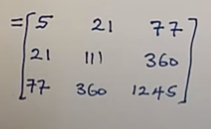 = [ 5 21 77
21 111 360
77 360 1245 ]